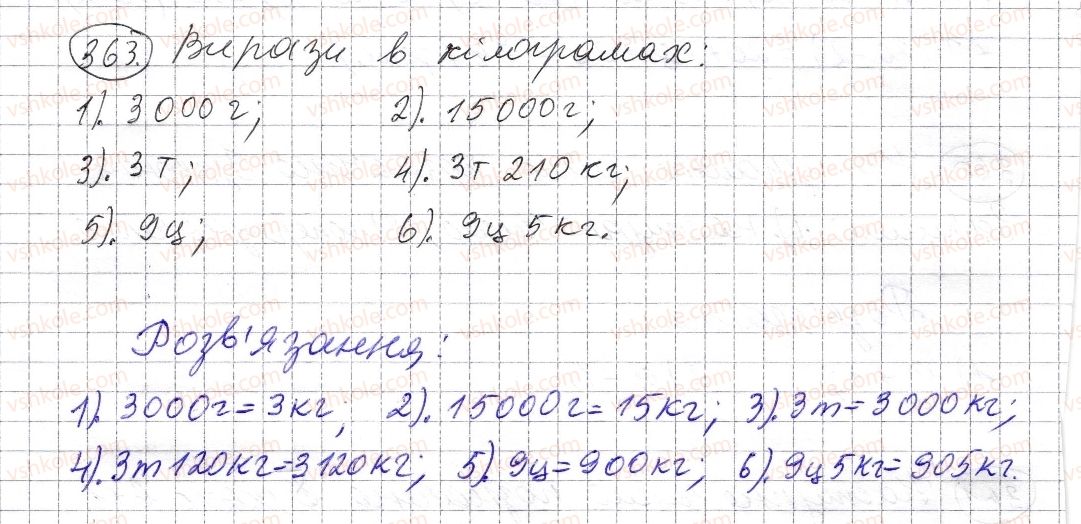 363. Вирази в кілограмах:
1). 3000г; 2). 15000г;
3). 3т; 4). 3т 210кг;
5). 9ц; 6). 9ц 5кг.
Розв'язання:
1). 3000г = 3кг; 2). 15000г = 15кг; 3). 3т = 3000кг;
4). 3т 120кг = 3120кг; 5). 9ц = 900кг; 6). 9ц 5кг = 905кг.